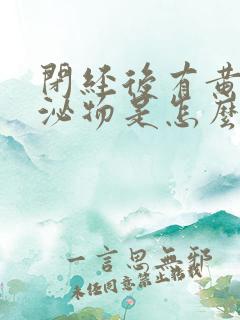 閉經後有黃
泌物是怎麼
一言思無邪
未經同意禁止轉載